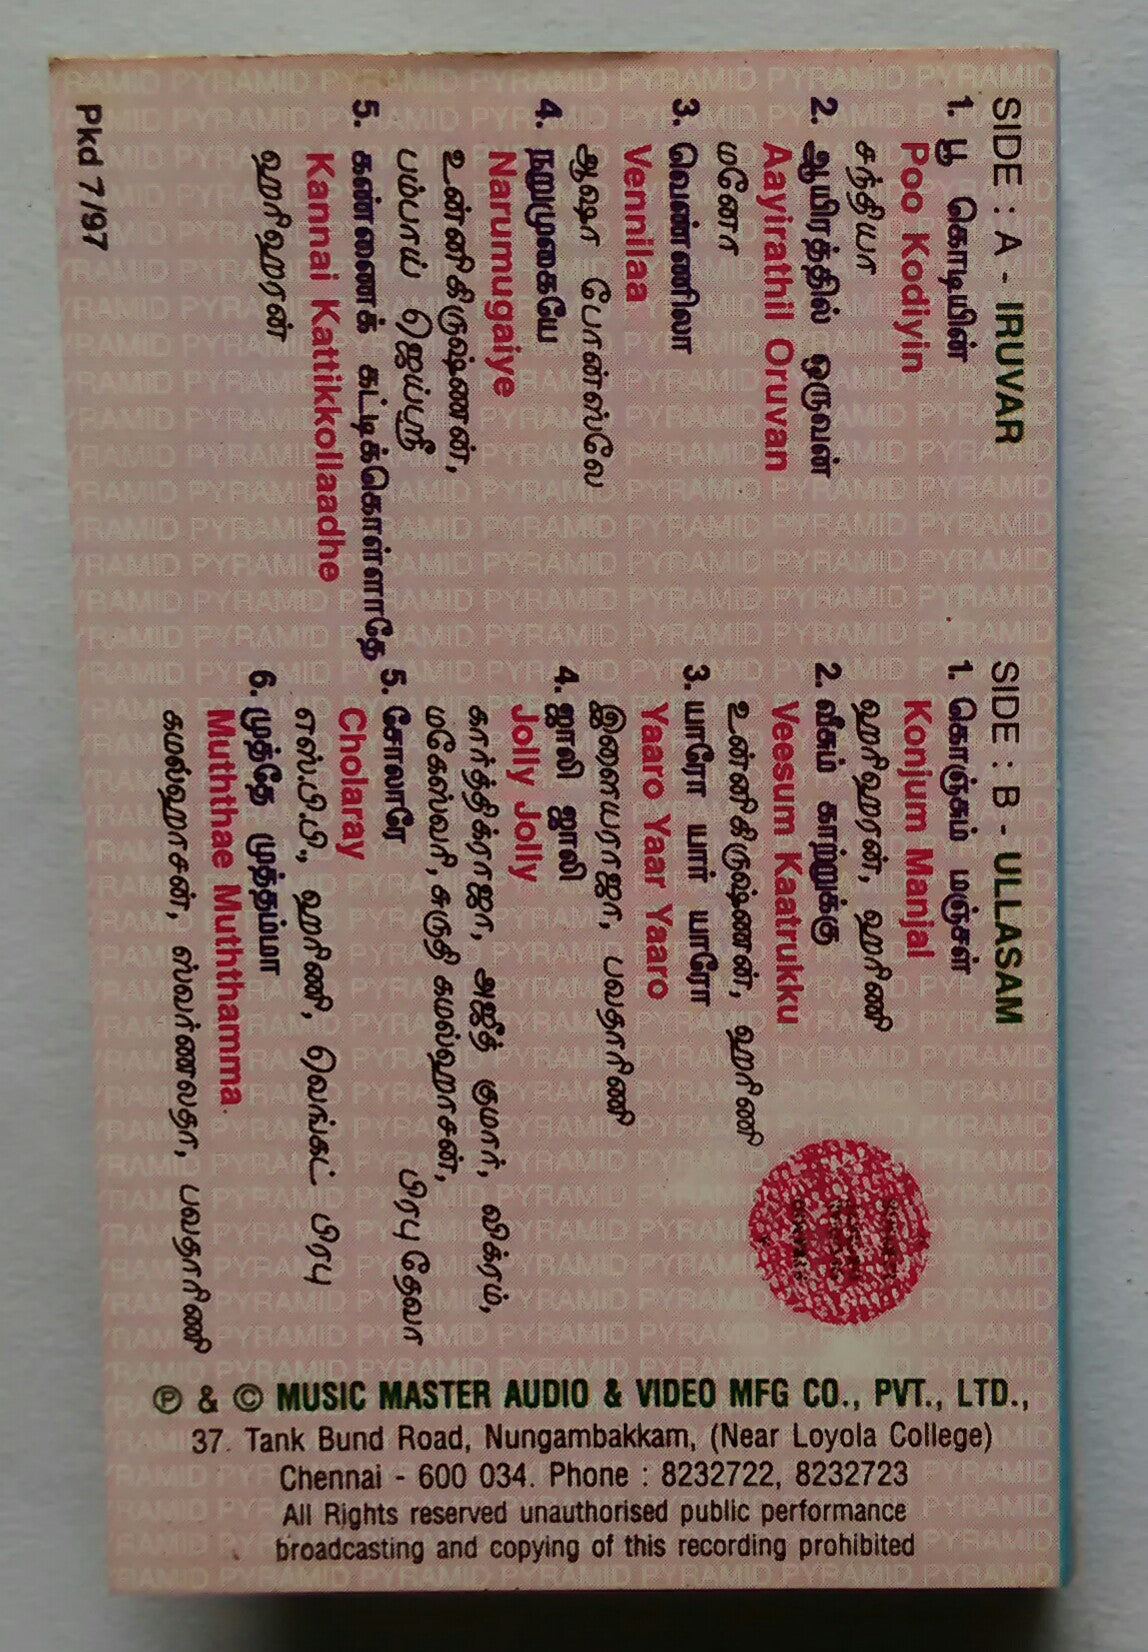 SIDE : A - IRUVAR
1. பூ கொடியின்
Poo Kodiyin
சந்தியா
2. ஆயிரத்தில் ஒருவன்
Aayirathil Oruvan
மனோ
3. வெண்ணிலா
Vennilaa
ஆஷா போன்ஸ்லே
4. நறுமுகையே
Narumugaiye
உன்னிகிருஷ்ணன்,
பம்பாய் ஜெய்ஸ்ரீ
5. கண்ணைக் கட்டிக்கொள்ளாதே
Kannai Kattikkollaadhe
ஹரிஹரன்
Pkd 7/97
SIDE : B - ULLASAM
1. கொஞ்சும் மஞ்சள்
Konjum Manjal
ஹரிஹரன், ஹரிணி
2. வீசும் காற்றுக்கு
Veesum Kaatrukku
உன்னிகிருஷ்ணன், ஹரிணி
3. யாரோ யார் யாரோ
Yaaro Yaar Yaaro
இளையராஜா, பவதாரிணி
4. ஜாலி ஜாலி
Jolly Jolly
கார்த்திக்ராஜா, அஜீத் குமார், விக்ரம்,
மகேஸ்வரி, சுருதி கமல்ஹாசன்,
பிரபு தேவா
5. சோலாரே
Cholaray
எஸ்.பி.பி, ஹரிணி, வெங்கட் பிரபு
6. முத்தே முத்தம்மா
Muththae Muththamma
கமல்ஹாசன், ஸ்வர்ணலதா, பவதாரிணி
℗ & © MUSIC MASTER AUDIO & VIDEO MFG CO., PVT., LTD.,
37. Tank Bund Road, Nungambakkam, (Near Loyola College)
Chennai - 600 034. Phone : 8232722, 8232723
All Rights reserved unauthorised public performance
broadcasting and copying of this recording prohibited